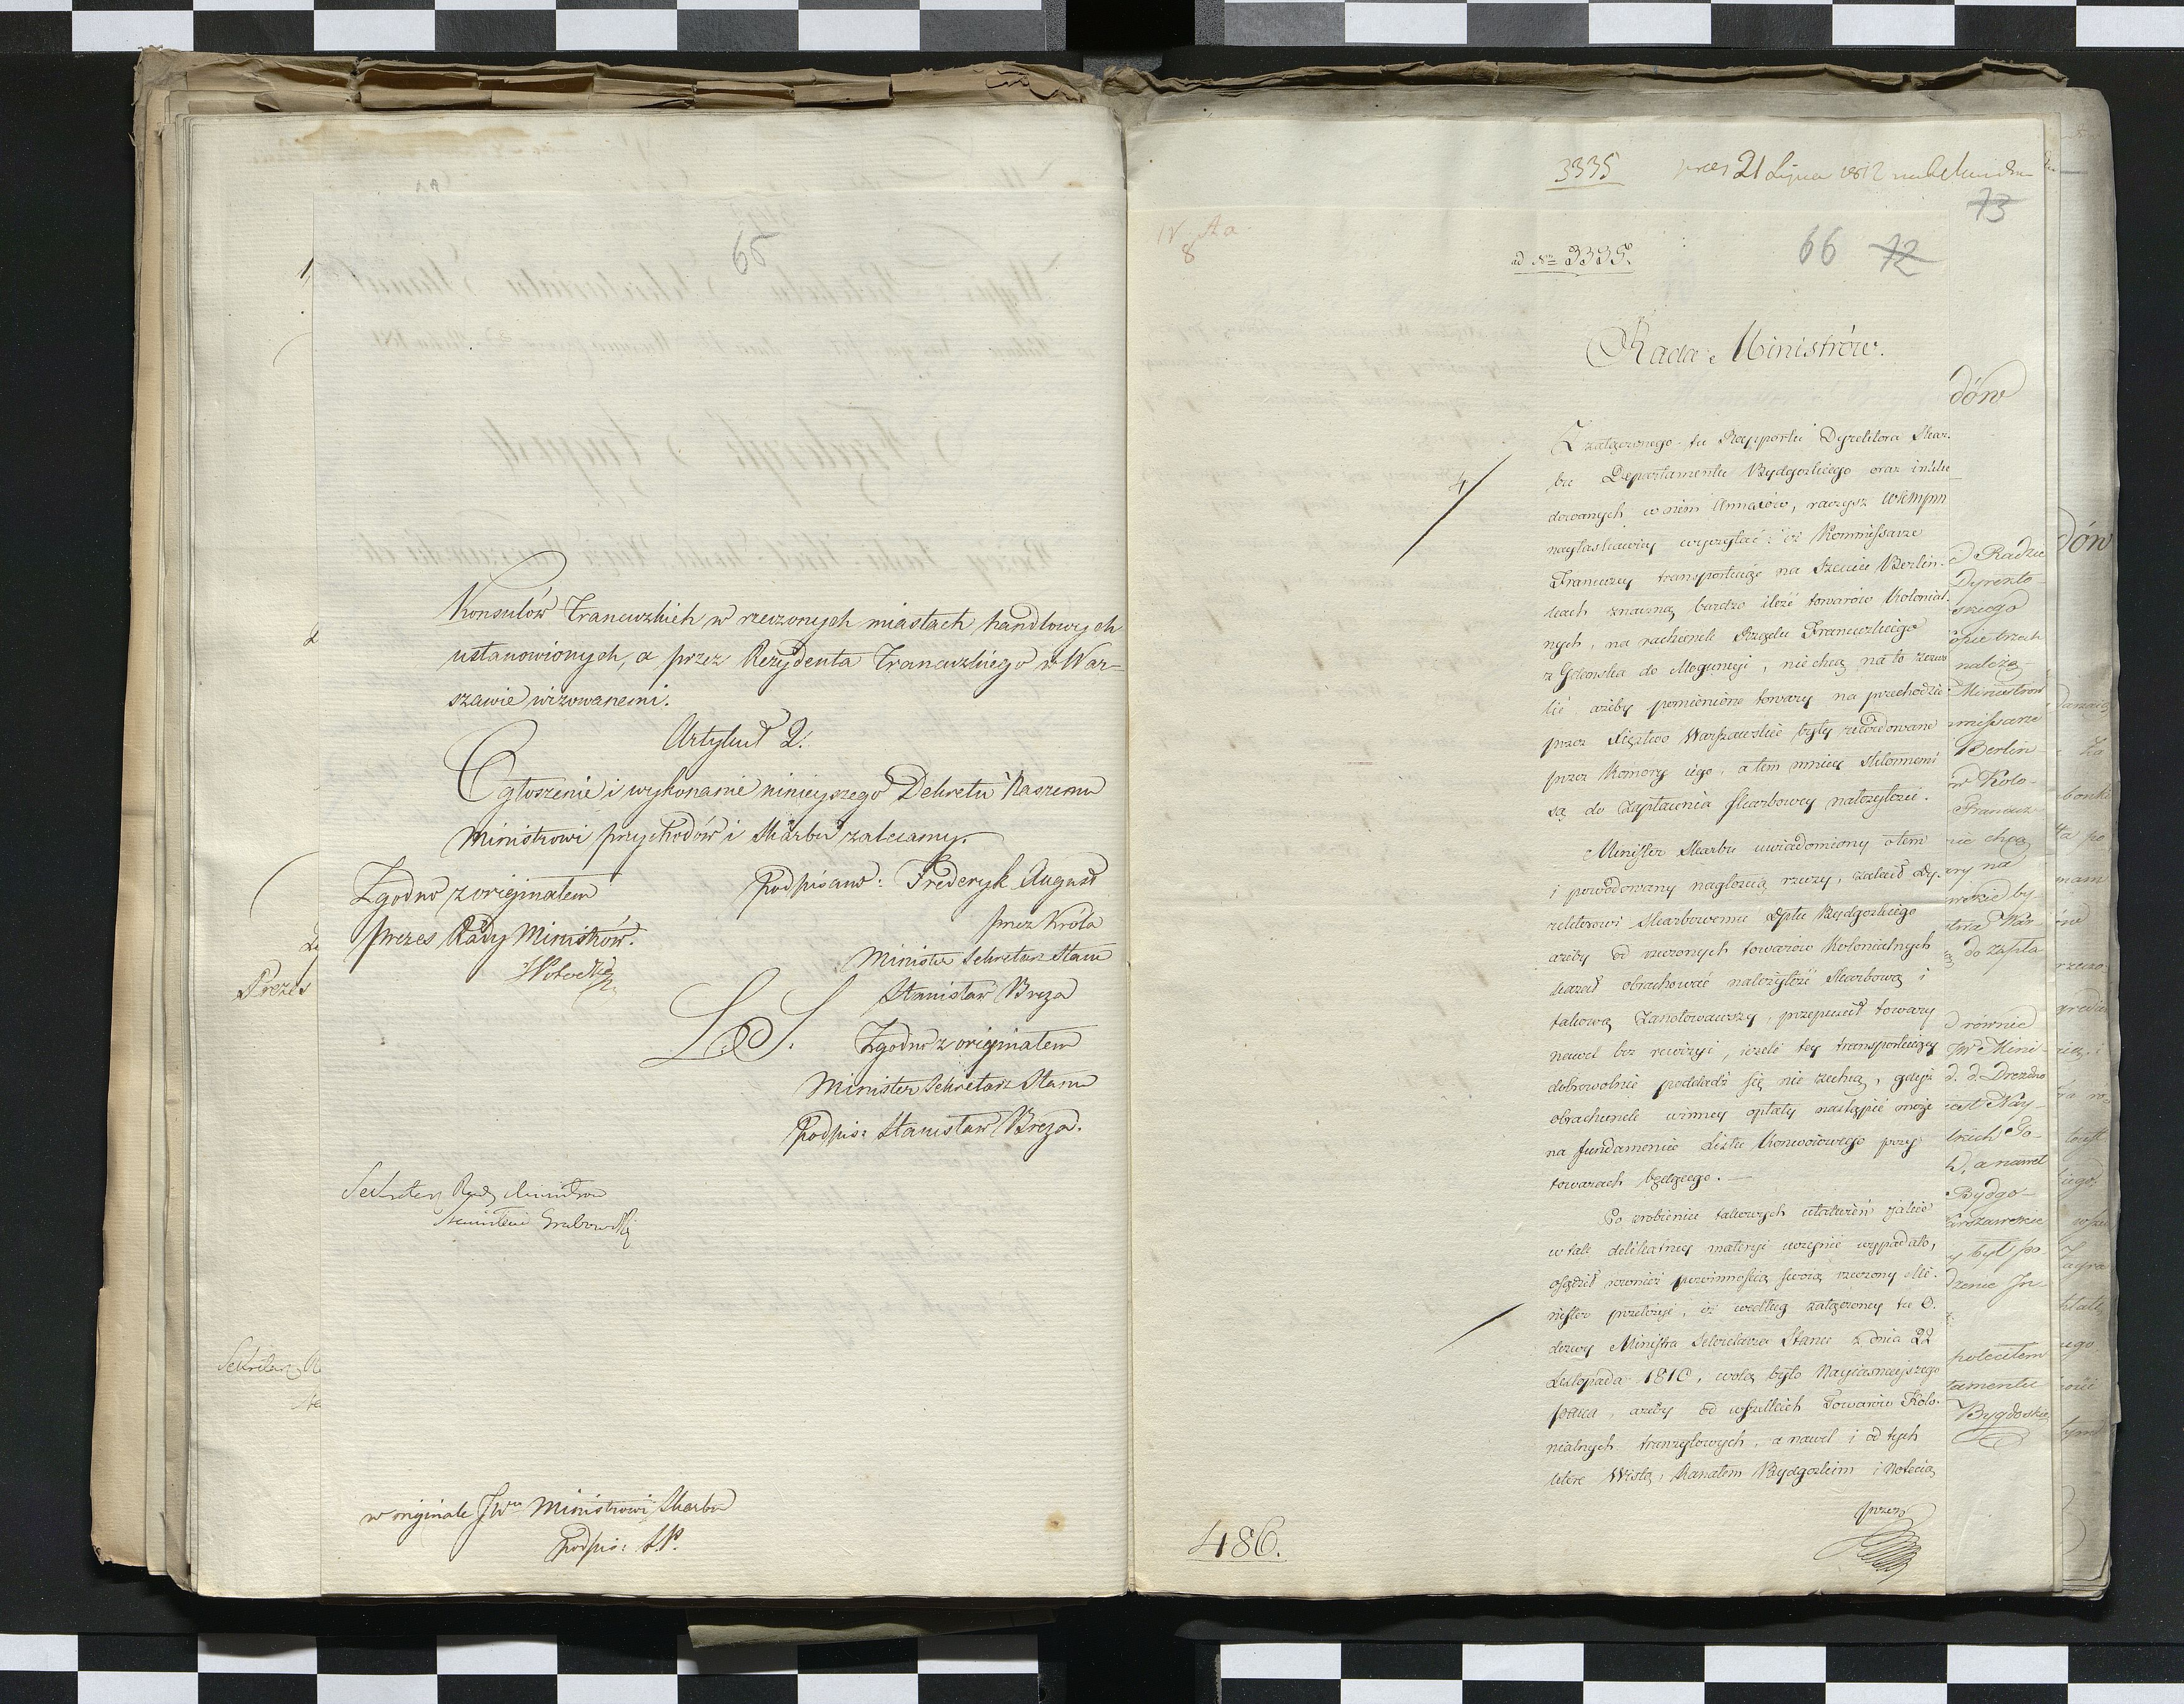 65
Konsulów Francuzkich w rzeczonych miastach handlowych
ustanowionych, a przez Rezydenta Francuzkiego w War-
szawie wizowanemi.
Artykuł 2.
Ogłoszenie i wykonanie ninieyszego Dekretu Naszemu
Ministrowi przychodów i Skarbu zalecamy.
Podpisano: Frederyk August
przez Króla
Minister Sekretarz Stanu
Stanisław Breza
L. S.
Zgodno z originałem
Minister Sekretarz Stanu
Podpis: Stanisław Breza.
Zgodno z originałem
Prezes Rady Ministrów.
Sekretarz Rady Ministrów
Stanisław Grabowski
w originale JWu Ministrowi Skarbu
Podpis: S.P.
Prezes
Sekretarz
3335 21 Lipca 1812
73
66 72
ad Nr 3335.
Rada Ministrów.
4
Z załączonego tu Rapportu Dyrektora Skar-
bu Departamentu Bydgoskiego oraz inklu
dowanych w niem Annexów, raczysz
nayłaskawiey wyczytać: iż Kommissarze
Francuzcy transportuiąc na Szkuciec Berlin-
kach znaczną bardzo ilość towarów Kolonial-
nych, na rachunek Rządu Francuzkiego
z Gdańska do Moguncyi, nie chcą na to zezwo
lić ażeby pomienione towary na przechodzie
przez Xięztwo Warszawskie były rewidowane
przez Komory iego, a tem mniey skłonnemi
są do zapłacenia Skarbowey należytości.
Minister Skarbu uwiadomiony o tem
i powodowany nagłością rzeczy, zalecił Dy-
rektorowi Skarbowemu Dptu Bydgoskiego
ażeby od rzeczonych towarów Kolonialnych
kazał obrachować należytość Skarbową i
takową zanotowawszy, przepuścił towary
nawet bez rewizyi, ieżeli tey transportuiący
dobrowolnie poddadź się nie zechcą, gdyż
obrachunek winney opłaty nastąpić może
na fundamencie Listu Konwoiowego przy
towarach będącego. —
Po zrobieniu takowych ułatwień jakie
w tak delikatney materyi uczynić wypadało,
osądził równieź powinnością swoią rzeczony Mi-
nister przełożyć, iż według załączoney tu O-
dezwy Ministra Sekretarza Stanu z dnia 22
Listopada 1810, wolą było Nayiaśnieyszego
Pana, ażeby od wszelkich Towarów Kolo-
nialnych tranzytowych, a nawet i od tych
które Wisłą, Kanałem Bydgoskim i Notecią
przez
486.
dów
Radzie
Dyrekto-
należą-
Ministrów
Berlin
Kolo-
Francuz
nie chcą
do zapła
równie
Mini-
d. d. Drezdno
a nawet
Bydgo-
był po-
poleciłem
tamentu
Bydgoskie
dów